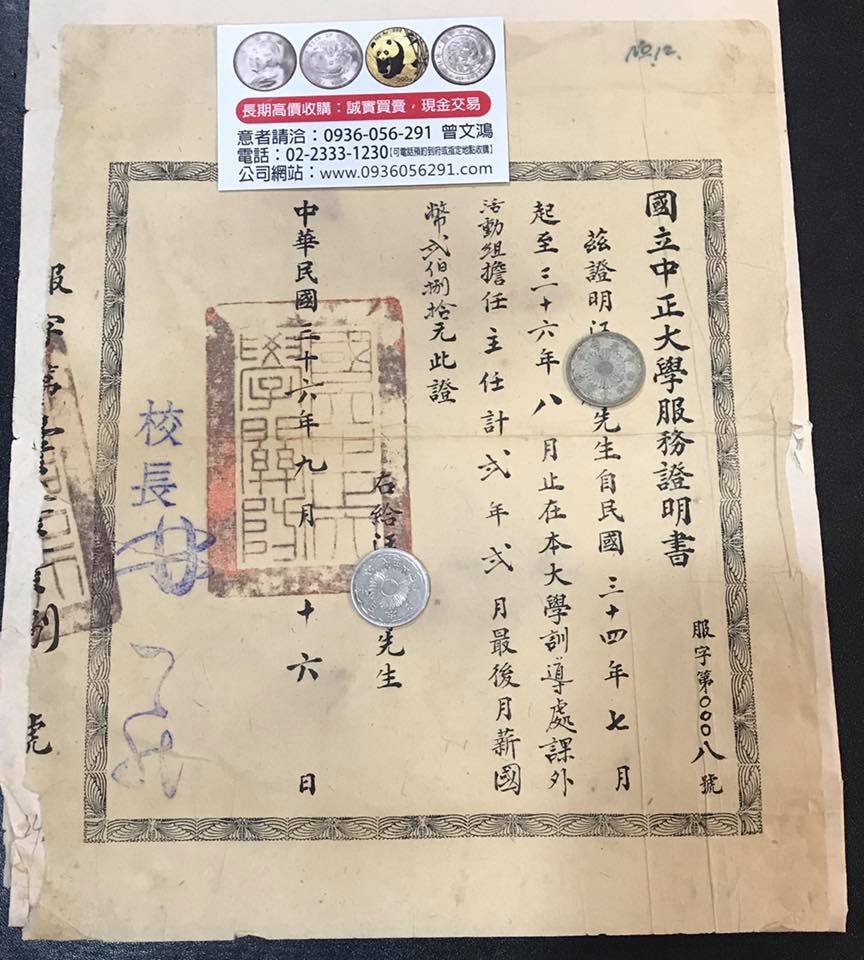 NO.12.
長期高價收購：誠實買賣，現金交易
意者請洽：0936-056-291 曾文鴻
電話：02-2333-1230【可電話預約到府或指定地點收購】
公司網站：www.0936056291.com
國立中正大學服務證明書
服字第000八號
茲證明江 先生自民國三十四年七月
起至三十六年八月止在本大學訓導處課外
活動組擔任主任計弍年弍月最後月薪國
幣弍伯捌拾元此證
右給江 先生
中華民國三十六年九月十六日
校長
服字第 號